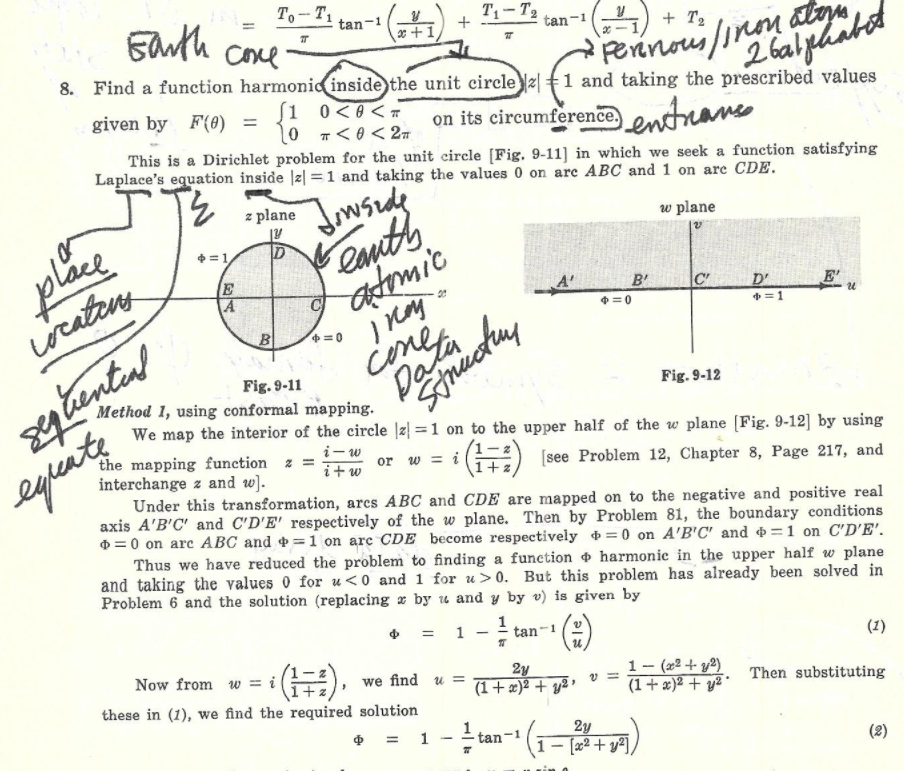 = T₀ − T₁/π tan⁻¹ (y/x+1) + T₁ − T₂/π tan⁻¹ (y/x−1) + T₂
Earth core
ferrous/iron atom
26 alphabet
8. Find a function harmonic inside the unit circle |z| = 1 and taking the prescribed values
given by F(θ) = {1 0 < θ < π
0 π < θ < 2π on its circumference.
entrance
This is a Dirichlet problem for the unit circle [Fig. 9-11] in which we seek a function satisfying
Laplace's equation inside |z| = 1 and taking the values 0 on arc ABC and 1 on arc CDE.
place
locations
sequential
equate
z plane
y
D
Φ = 1
E
A
C
x
B
Φ = 0
Fig. 9-11
inside
earth
atomic
iron
core
Data
Structure
w plane
v
A' B' C' D' E' u
Φ = 0 Φ = 1
Fig. 9-12
Method 1, using conformal mapping.
We map the interior of the circle |z| = 1 on to the upper half of the w plane [Fig. 9-12] by using
the mapping function z = i − w/i + w or w = i (1 − z/1 + z) [see Problem 12, Chapter 8, Page 217, and
interchange z and w].
Under this transformation, arcs ABC and CDE are mapped on to the negative and positive real
axis A'B'C' and C'D'E' respectively of the w plane. Then by Problem 81, the boundary conditions
Φ = 0 on arc ABC and Φ = 1 on arc CDE become respectively Φ = 0 on A'B'C' and Φ = 1 on C'D'E'.
Thus we have reduced the problem to finding a function Φ harmonic in the upper half w plane
and taking the values 0 for u < 0 and 1 for u > 0. But this problem has already been solved in
Problem 6 and the solution (replacing x by u and y by v) is given by
Φ = 1 − 1/π tan⁻¹ (v/u) (1)
Now from w = i (1 − z/1 + z), we find u = 2y/(1 + x)² + y², v = 1 − (x² + y²)/(1 + x)² + y². Then substituting
these in (1), we find the required solution
Φ = 1 − 1/π tan⁻¹ (2y/1 − [x² + y²]) (2)